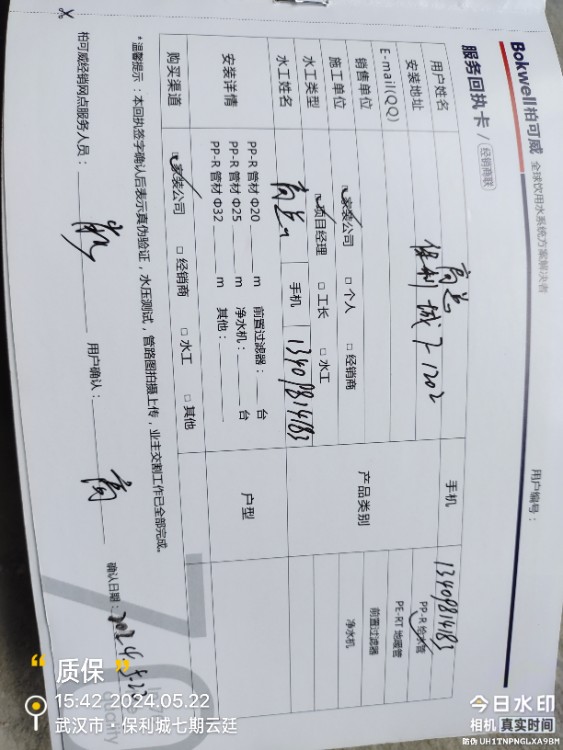 Bokwell柏可威 全球饮用水系统方案解决者
服务回执卡 / 经销商联
用户编号：
用户姓名 高总 手机 13409814183
安装地址 保利城 7-1202
E-mail(QQ)
产品类别 PP-R 给水管 PE-RT 地暖管 前置过滤器 净水机
销售单位
施工单位 □家装公司 □个人 □经销商
水工类型 □项目经理 □工长 □水工
水工姓名 手机 13409814183
安装详情 PP-R 管材 Φ20 m 前置过滤器： 台
PP-R 管材 Φ25 m 净水机： 台
PP-R 管材 Φ32 m 其他：
户型
购买渠道 □家装公司 □经销商 □水工 □其他
*温馨提示：本回执签字确认后表示真伪验证，水压测试，管路图拍摄上传，业主交割工作已全部完成。
柏可威经销网点服务人员： 用户确认： 高 确认日期： 2024.5.22
“ 质保 ”
15:42 2024.05.22
武汉市·保利城七期云廷
今日水印
相机 真实时间
防伪 UH1TNPNGLXA9BM